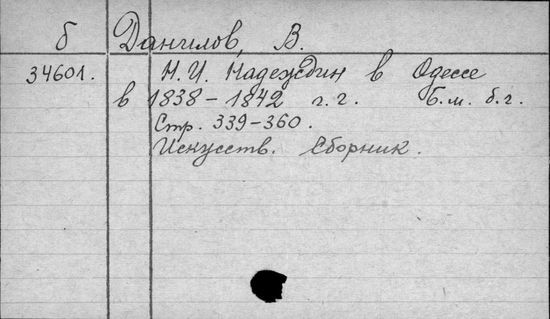 б Данилов, В.
34601. Н. И. Надеждин в Одессе
в 1838-1842 г.г. Б.м. б.г.
Стр. 339-360.
Искусств. Сборник.